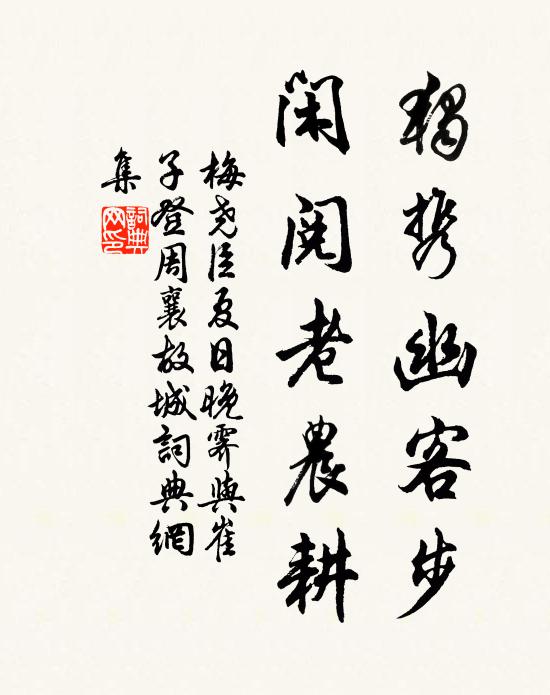 獨携幽客步
閑閱老農耕
梅堯臣夏日晚霽與崔
子登周襄故城詞典網
集
詞典
网印